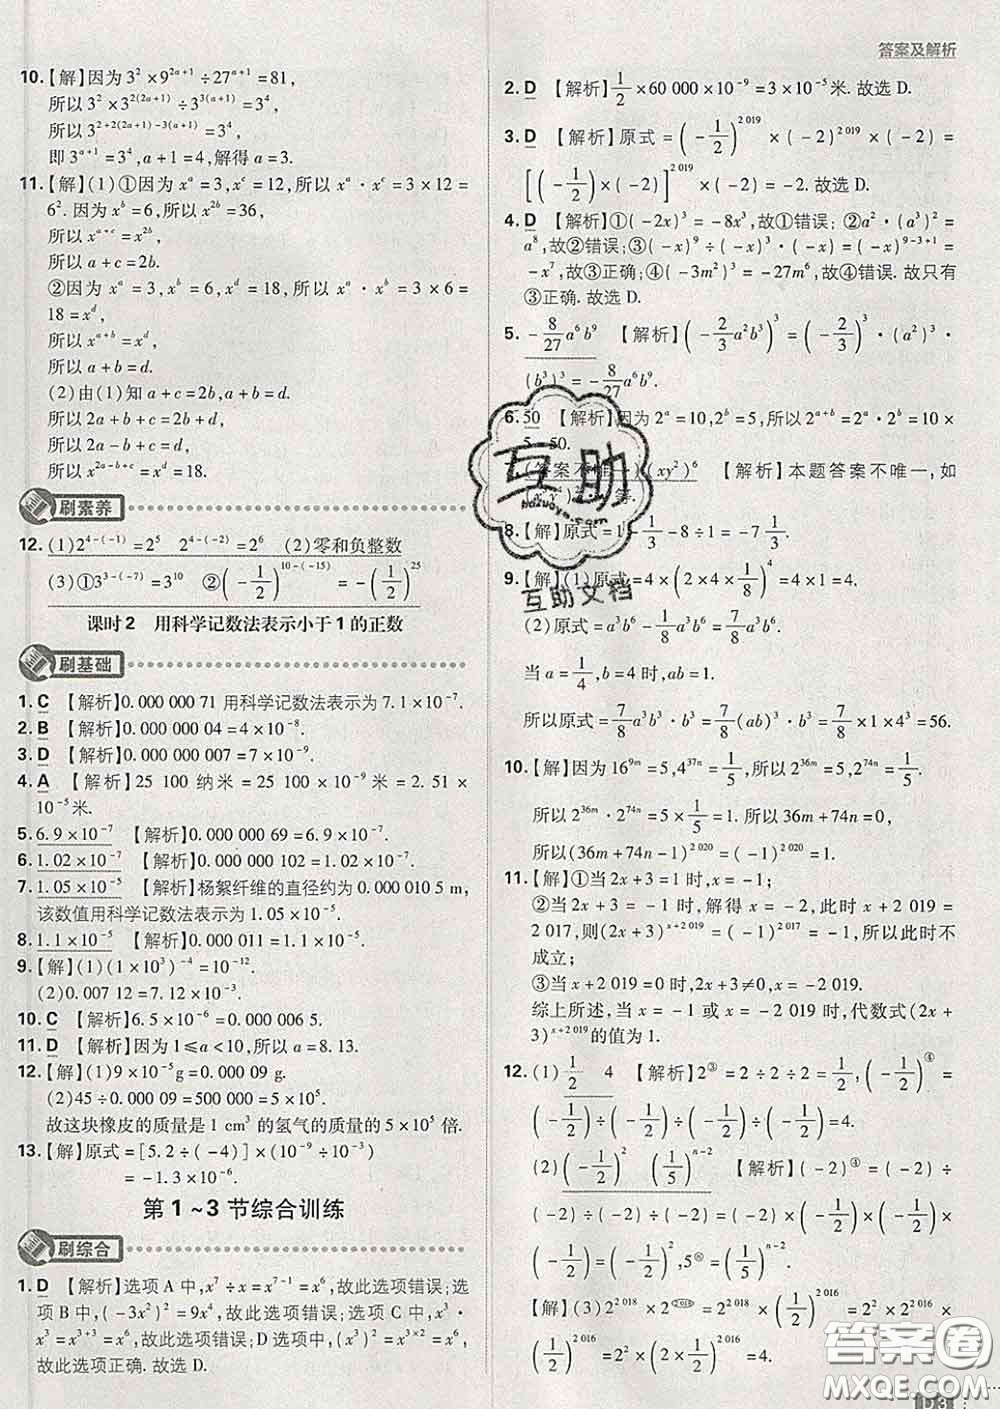 答案及解析
10.【解】因为 3²×9^(2a+1)÷27^(a+1)=81,
所以 3²×3^(2(2a+1))÷3^(3(a+1))=3⁴,
所以 3^(2+2(2a+1)-3(a+1))=3⁴,
即 3^(a+1)=3⁴,a+1=4,解得 a=3.
11.【解】(1)①因为 x^a=3,x^c=12,所以 x^a·x^c=3×12=
6². 因为 x^b=6,所以 x^(2b)=36,
所以 x^(a+c)=x^(2b),
所以 a+c=2b.
②因为 x^a=3,x^b=6,所以 x^a·x^b=3×6=
18=x^d,
所以 x^(a+b)=x^d,
所以 a+b=d.
(2)由(1)知 a+c=2b,a+b=d.
所以 2a+b+c=2b+d,
所以 2a-b+c=d,
所以 x^(2a-b+c)=x^d=18.
刷素养
12.(1)2^(4-(-1))=2⁵ 2^(4-(-2))=2⁶ (2)零和负整数
(3)①3^(3-(-7))=3¹⁰ ②(-1/2)^(10-(-15))=(-1/2)²⁵
课时2 用科学记数法表示小于1的正数
刷基础
1. C 【解析】0.000 000 71 用科学记数法表示为 7.1×10⁻⁷.
2. B 【解析】0.000 000 04=4×10⁻⁸.
3. D 【解析】0.000 000 007=7×10⁻⁹.
4. A 【解析】25 100 纳米=25 100×10⁻⁹ 米=2.51×
10⁻⁵米.
5. 6.9×10⁻⁷ 【解析】0.000 000 69=6.9×10⁻⁷.
6. 1.02×10⁻⁷ 【解析】0.000 000 102=1.02×10⁻⁷.
7. 1.05×10⁻⁵ 【解析】杨絮纤维的直径约为 0.000 010 5 m,
该数值用科学记数法表示为 1.05×10⁻⁵.
8. 1.1×10⁻⁵ 【解析】0.000 011=1.1×10⁻⁵.
9.【解】(1)(1×10³)⁻⁴=10⁻¹².
(2)0.007 12=7.12×10⁻³.
10. C 【解析】6.5×10⁻⁶=0.000 006 5.
11. D 【解析】因为 1≤a<10,所以 a=8.13.
12.【解】(1)9×10⁻⁵g=0.000 09 g.
(2)45÷0.000 09=500 000=5×10⁵.
故这块橡皮的质量是 1 cm³的氢气的质量的 5×10⁵ 倍.
13.【解】原式=[5.2÷(-4)]×(10⁻⁹÷10⁻³)
=-1.3×10⁻⁶.
第1~3节综合训练
刷综合
1. D 【解析】选项 A 中,x⁷÷x=x^(7-1)=x⁶,故此选项错误;选
项 B 中,(-3x²)²=9x⁴,故此选项错误;选项 C 中,x³·
x³=x^(3+3)=x⁶,故此选项错误;D 选项中,(x³)²=x^(3×2)=x⁶,
故此选项正确. 故选 D.
2. D 【解析】1/2×60 000×10⁻⁹=3×10⁻⁵米. 故选 D.
3. D 【解析】原式=(-1/2)^(2 019)×(-2)^(2 019)×(-2)=
[(-1/2)×(-2)]^(2 019)×(-2)=-2. 故选 D.
4. D 【解析】①(-2x)³=-8x³,故①错误; ②a²·(a³)²=
a⁸,故②错误;③(-x)⁹÷(-x)³·(-x)=(-x)^(9-3+1)=
-x⁷,故③正确;④(-3m²)³=-27m⁶,故④错误. 故只有
③正确. 故选 D.
5. -8/27a⁶b⁹ 【解析】(-2/3a²b³)³=(-2/3)³·(a²)³·
(b³)³=-8/27a⁶b⁹.
6. 50 【解析】因为 2^a=10,2^b=5,所以 2^(a+b)=2^a·2^b=10×
5=50.
7. (答案不唯一)(xy²)⁶ 【解析】本题答案不唯一,如
等.
8.【解】原式=1-1/3-8÷1=-7 1/3.
9.【解】(1)原式=4×(2×4×1/8)⁴=4×1=4.
(2)原式=a³b⁶-1/8a³b⁶=7/8a³b⁶.
当 a=1/4,b=4 时,ab=1.
所以原式=7/8a³b³·b³=7/8(ab)³·b³=7/8×1×4³=56.
10.【解】因为 16^(9m)=5,4^(37n)=1/5,所以 2^(36m)=5,2^(74n)=1/5,
所以 2^(36m)·2^(74n)=5×1/5=1. 所以 36m+74n=0,
所以(36m+74n-1)^(2 020)=(-1)^(2 020)=1.
11.【解】①当 2x+3=1 时,x=-1;
②当 2x+3=-1 时,解得 x=-2,此时 x+2 019=
2 017,则(2x+3)^(x+2 019)=(-1)^(2 017)=-1,所以此时不
成立;
③当 x+2 019=0 时,2x+3≠0,x=-2 019.
综上所述,当 x=-1 或 x=-2 019 时,代数式(2x+
3)^(x+2 019)的值为 1.
12.(1)1/2 4 【解析】2^③=2÷2÷2=1/2,(-1/2)^④=
(-1/2)÷(-1/2)÷(-1/2)÷(-1/2)=4.
(2)(-1/2)² (1/5)^(n-2) 【解析】(-2)^④=(-2)÷
(-2)÷(-2)÷(-2)=(-2)×(-1/2)×(-1/2)×
(-1/2)=(-1/2)²,5^ⓝ=(1/5)^(n-2).
【解】(3)2^(2 018)×2^(2 018)=2^(2 018)×(1/2)^(2 016)=2²×2^(2 016)×
(1/2)^(2 016)=2²×(2×1/2)^(2 016)=4.
D3
互助
huzuoye.com
互助文档
答案圈
MXQE.COM